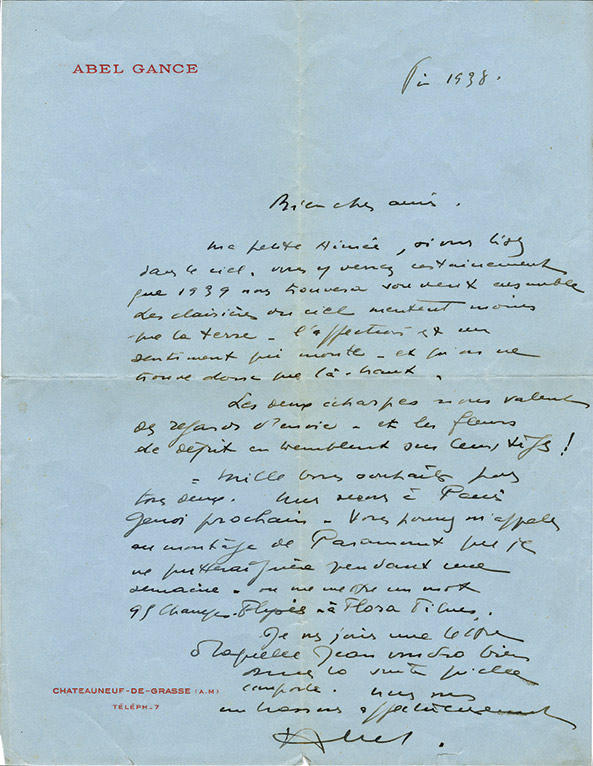 ABEL GANCE
Fin 1938.
Bien chers amis.
Ma petite Aimée, si vous lisez
dans le ciel, vous y verrez certainement
que 1939 nous trouvera souvent ensemble
Les du ciel mentent moins
que la terre - l'affection est un
sentiment qui monte - et qu'on ne
trouve donc que là-haut.
Les deux écharpes nous valent
des regards d'envie - et les fleurs
de dépit en tremblent sur leurs tiges !
- Mille bons souhaits pour
tous deux. Nous serons à Paris
prochain - Vous pourrez m'appeler
au montage de Paramount que je
ne quitterai guère pendant une
semaine - ou me mettre un mot
Champs-Elysées - à Flora Films.
Je vous joins une lettre
à laquelle Jean voudra bien
donner la suite qu'elle
comporte. Nous vous
embrassons affectueusement
Abel.
CHATEAUNEUF-DE-GRASSE (A.M)
TÉLÉPH-7